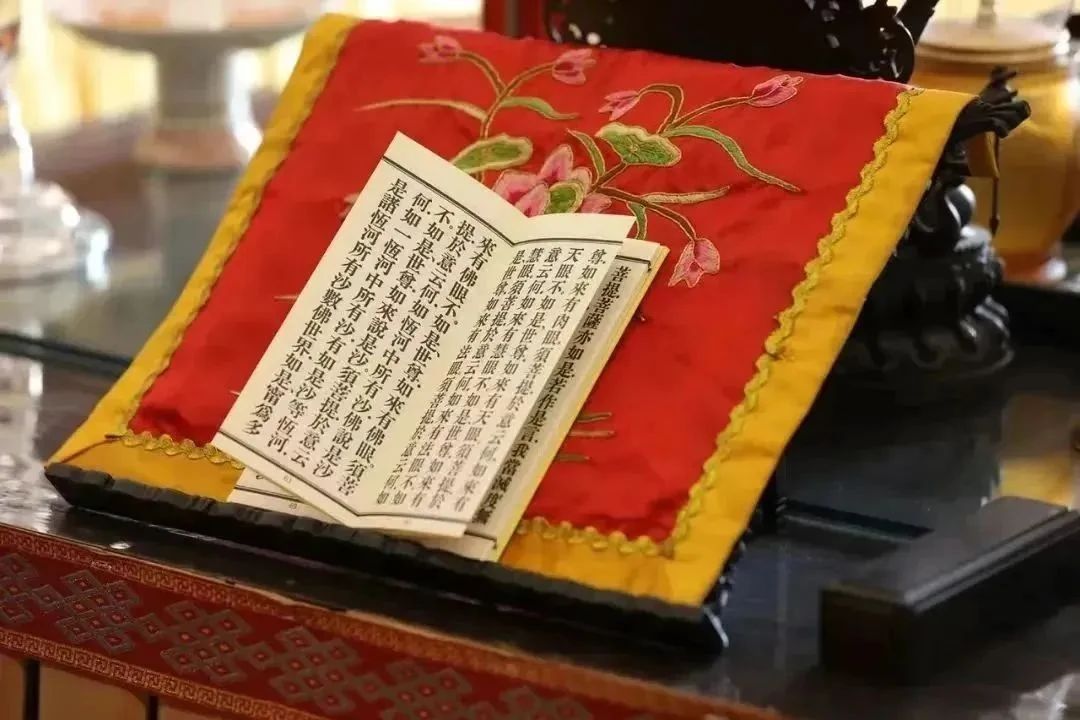 菩提菩薩亦如是若作是言我當滅度無
尊如來有肉眼。須菩提。於意云何。如來有
天眼不。如是。世尊。如來有天眼。須菩提。於
意云何。如來有慧眼不。如是。世尊。如來有
慧眼。須菩提。於意云何。如來有法眼不。如
是。世尊。如來有法眼。須菩提。於意云何。如
來有佛眼不。如是。世尊。如來有佛眼。須菩
提。於意云何。如恆河中所有沙。佛說是沙
不。如是。世尊。如來說是沙。須菩提。於意云
何。如一恆河中所有沙。有如是沙等恆河。
是諸恆河所有沙數佛世界。如是寧爲多